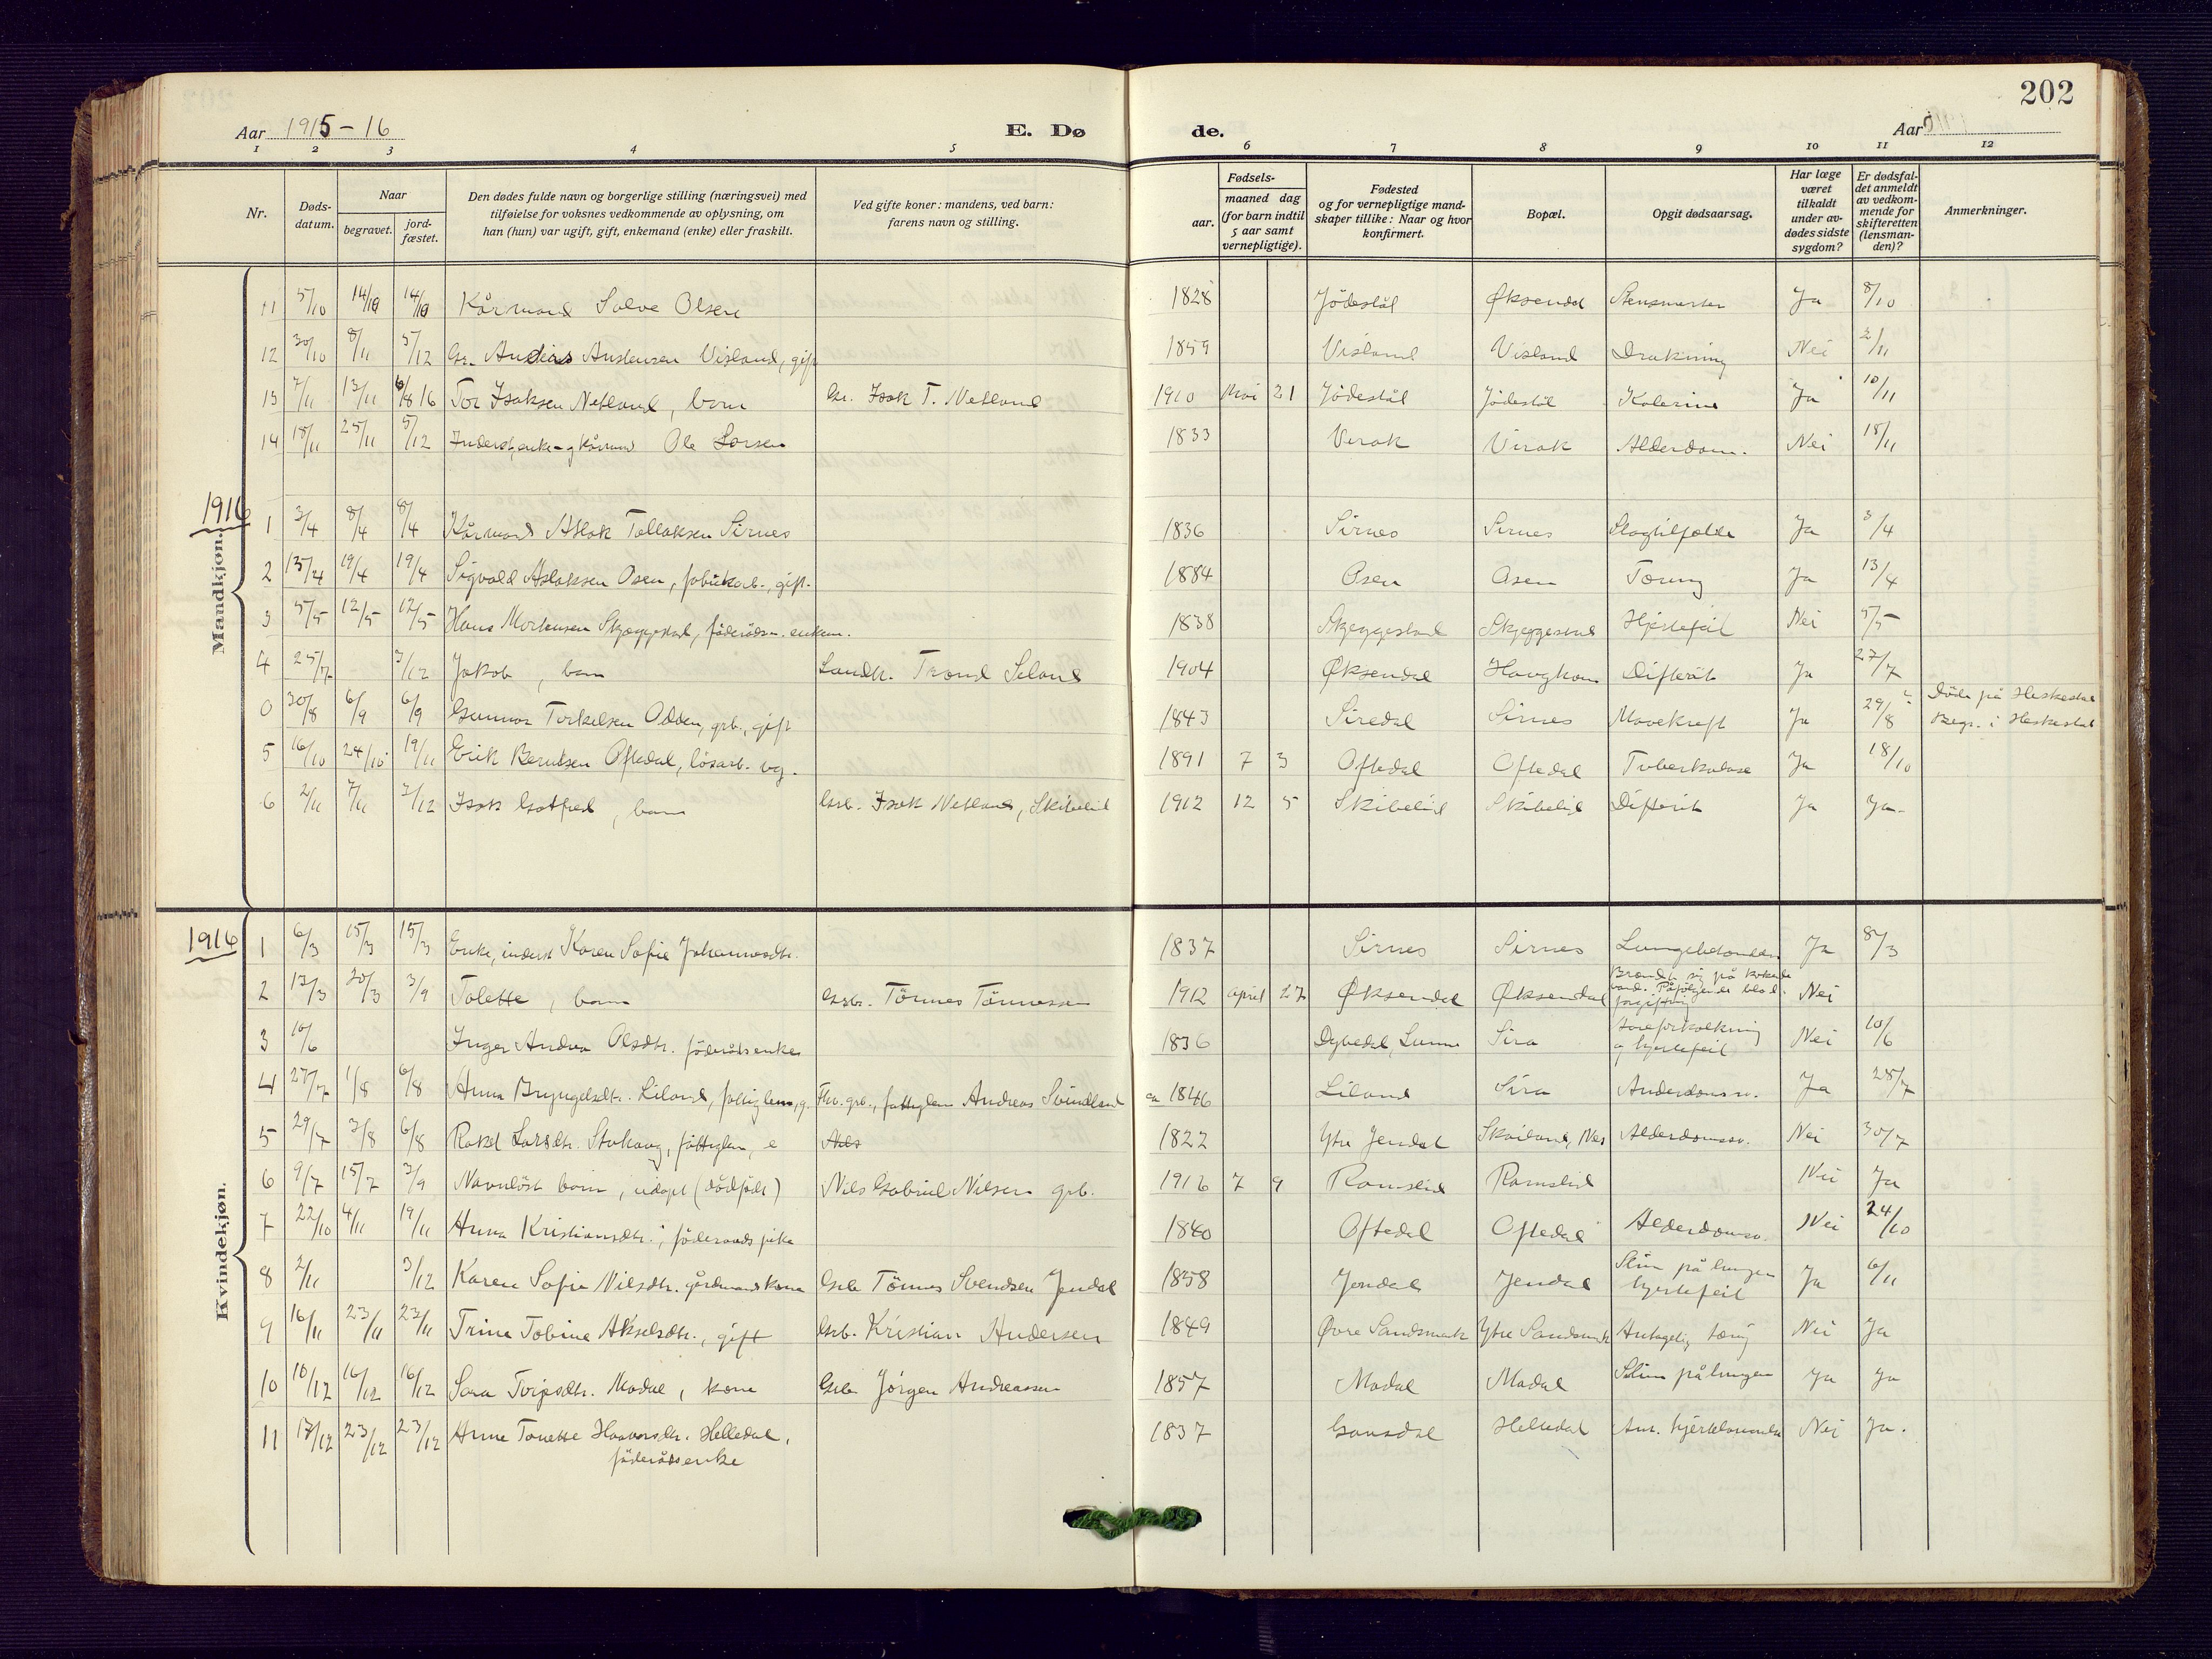 202
Aar 1915-16
E. Dø
de.
Aar
1 2 3 4 5 6 7 8 9 10 11 12
Nr.
Døds-
datum.
Naar
begravet.
jord-
fæstet.
Den dødes fulde navn og borgerlige stilling (næringsvei) med
tilføielse for voksnes vedkommende av oplysning, om
han (hun) var ugift, gift, enkemand (enke) eller fraskilt.
Ved gifte koner: mandens, ved barn:
farens navn og stilling.
Fødsels-
aar.
maaned dag
(for barn indtil
5 aar samt
vernepligtige).
Fødested
og for vernepligtige mand-
skaper tillike: Naar og hvor
konfirmert.
Bopæl.
Opgit dødsaarsag.
Har læge
været
tilkaldt
under av-
dødes sidste
sygdom?
Er dødsfal-
det anmeldt
av vedkom-
mende for
skifteretten
(lensman-
den)?
Anmerkninger.
Mandkjøn.
11 5/10 14/10 14/10 Kårmand Salve Olsen 1828 Jödestöl Øksendal Ja 8/10
12 30/10 8/11 5/12 Andreas Austensen Visland, gift 1859 Visland Visland Drukning Nei 2/11
13 7/11 13/11 6/8 16 Tor Isaksen Netland, barn Gr. Isak T. Netland 1910 Mai 21 Jödestöl Jödestöl Kolerine Ja 10/11
14 18/11 25/11 5/12 Ole Larsen 1833 Virak Virak Alderdom. Nei 18/11
1916
1 3/4 8/4 8/4 Kårmand Aslak Tollaksen Sirnes 1836 Sirnes Sirnes Slagtilfælde Ja 3/4
2 13/4 19/4 19/4 Sigvald Aslaksen Osen, fabrikarb., gift. 1884 Osen Osen Tæring Ja 13/4
3 5/5 12/5 12/5 Hans Mortensen Skjeggestad, föderådsm. enkem. 1838 Skjeggestad Skjeggestad Hjertefeil Nei 5/5
4 25/7 3/12 Jakob, barn Landh. Trond Seland 1904 Øksendal Haughom Difterit Ja 27/7
0 30/8 6/9 6/9 Gunnar Torkelsen Odden, grb., gift 1843 Siredal Sirnes Mavekreft Ja 29/8 Döde på Heskestad
Begr. i Heskestad
5 16/10 24/10 19/11 Erik Berntsen Oftedal, lösarb. ug. 1891 7 3 Oftedal Oftedal Tuberkulose Ja 18/10
6 2/11 7/11 3/12 Isak Gotfred, barn Grb. Isak Netland, Skibelid 1912 12 5 Skibelid Skibelid Difterit Ja Ja.
Kvindekjøn.
1916
1 6/3 15/3 15/3 Enke, inderst Karen Sofie Johannesdtr. 1837 Sirnes Sirnes Lungebetændelse Ja 8/3
2 13/3 20/3 3/9 Tolette, barn Grb. Tönnes Tönnessen 1912 april 27 Øksendal Øksendal Brændte sig på kokende
vand. Påfölgende blod-
forgiftning Nei
3 10/6 Inger Andrea Olsdtr. föderådsenke 1836 Dybedal, Lunne Sira Åreforkalkning
og hjertefeil Nei 10/6
4 27/7 1/8 6/8 Anna Bryngelsdtr. Liland, fattiglem, g. Fhv. grb., fattiglem Andreas Svindland ca 1846 Liland Sira Alderdomssv. Ja 28/7
5 29/7 3/8 6/8 Rakel Larsdtr. Stuhaug, fattiglem, e 1822 Ytre Jendal Skailand, Nes Alderdomssv. Nei 30/7
6 9/7 15/7 3/9 Navnlöst barn, udöpt (dödfödt) Nils Gabriel Nilsen grb. 1916 7 9 Ramslid Ramslid Nei Ja
7 22/10 4/11 19/11 Anna Kristiansdtr., föderaads pike 1840 Oftedal Oftedal Alderdomssv. Nei 24/10
8 2/11 3/12 Karen Sofie Nilsdtr. gårdmandskone Grb Tönnes Svendsen Jendal 1858 Jendal Jendal Slim på lungen
hjertefeil Ja 6/11
9 16/11 23/11 23/11 Trine Tobine Akselsdtr., gift Grb. Kristian Andersen 1849 Øvre Sandsmark Ytre Sandsmark Antagelig tæring Nei Ja
10 10/12 16/12 16/12 Sara Torjesdtr. Modal, kone Grb Jörgen Andreassen 1857 Modal Modal Slim på lungen Ja Ja
11 17/12 23/12 23/12 Anne Tonette Haavorsdtr. Helledal,
föderådsenke 1837 Gausdal Helledal Ant. hjertelammelse Nei Ja.